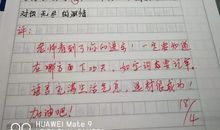 对你无尽的深情
评：
老师看到了你的进步！一定要知道
在哪方面下功夫，如字词要常记牢，
语言充满生活气息，选材很成功！
加油吧！
18/4
HUAWEI Mate 9